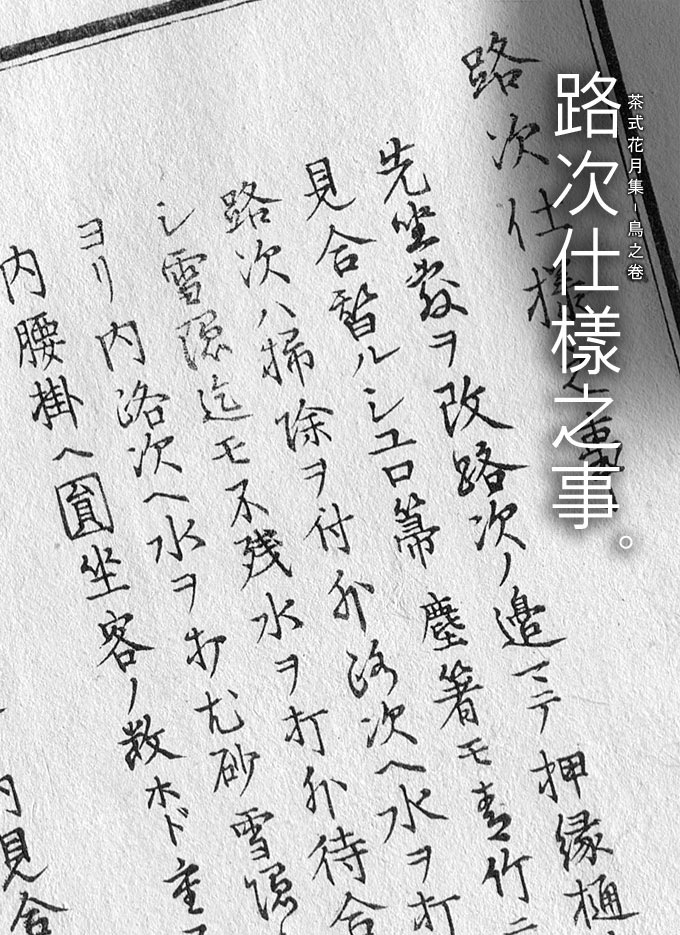 茶式花月集-鳥之巻
路次仕樣之事。
路次仕樣之事
先坐敷ヲ改路次ノ邉マニテ押縁樋
見合暫ルシユロ箒 塵箸モ青竹ニ
路次ハ掃除ヲ付外路次ヘ水ヲ打
シ雪隠迄モ不残水ヲ打外待合
ヨリ内洛次ヘ水ヲ打尤砂雪隠
内腰掛ヘ圓坐客ノ数ホド重
内見合